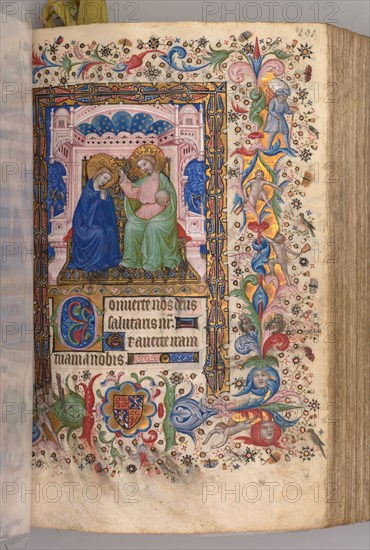 Conuerte nos deus
salutaris nr.
Et auerte iram
tuam a nobis
PHOTO 12